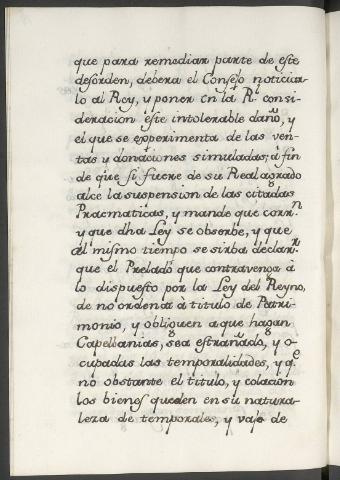 que para remediar parte de este
desorden, debera el Consejo noticiar-
lo al Rey, y poner en la Rl. consi-
deracion este intolerable daño, y
el que se experimenta de las ven-
tas y donaciones simuladas; á fin
de que si fuere de su Real agrado
alce la suspension de las citadas
Pracmaticas, y mande que corrn.
y que dha Ley se observe, y que
al mismo tiempo se sirba declarr.
que el Prelado que contravenga á
lo dispuesto por la Ley del Reyno,
de no ordenar á titulo de Patri-
monio, y obliguen a que hagan
Capellanias, sea estrañado, y o-
cupadas las temporalidades, y qe.
no obstante el titulo, y colacion
los bienes queden en su natura-
leza de temporales, y vajo de